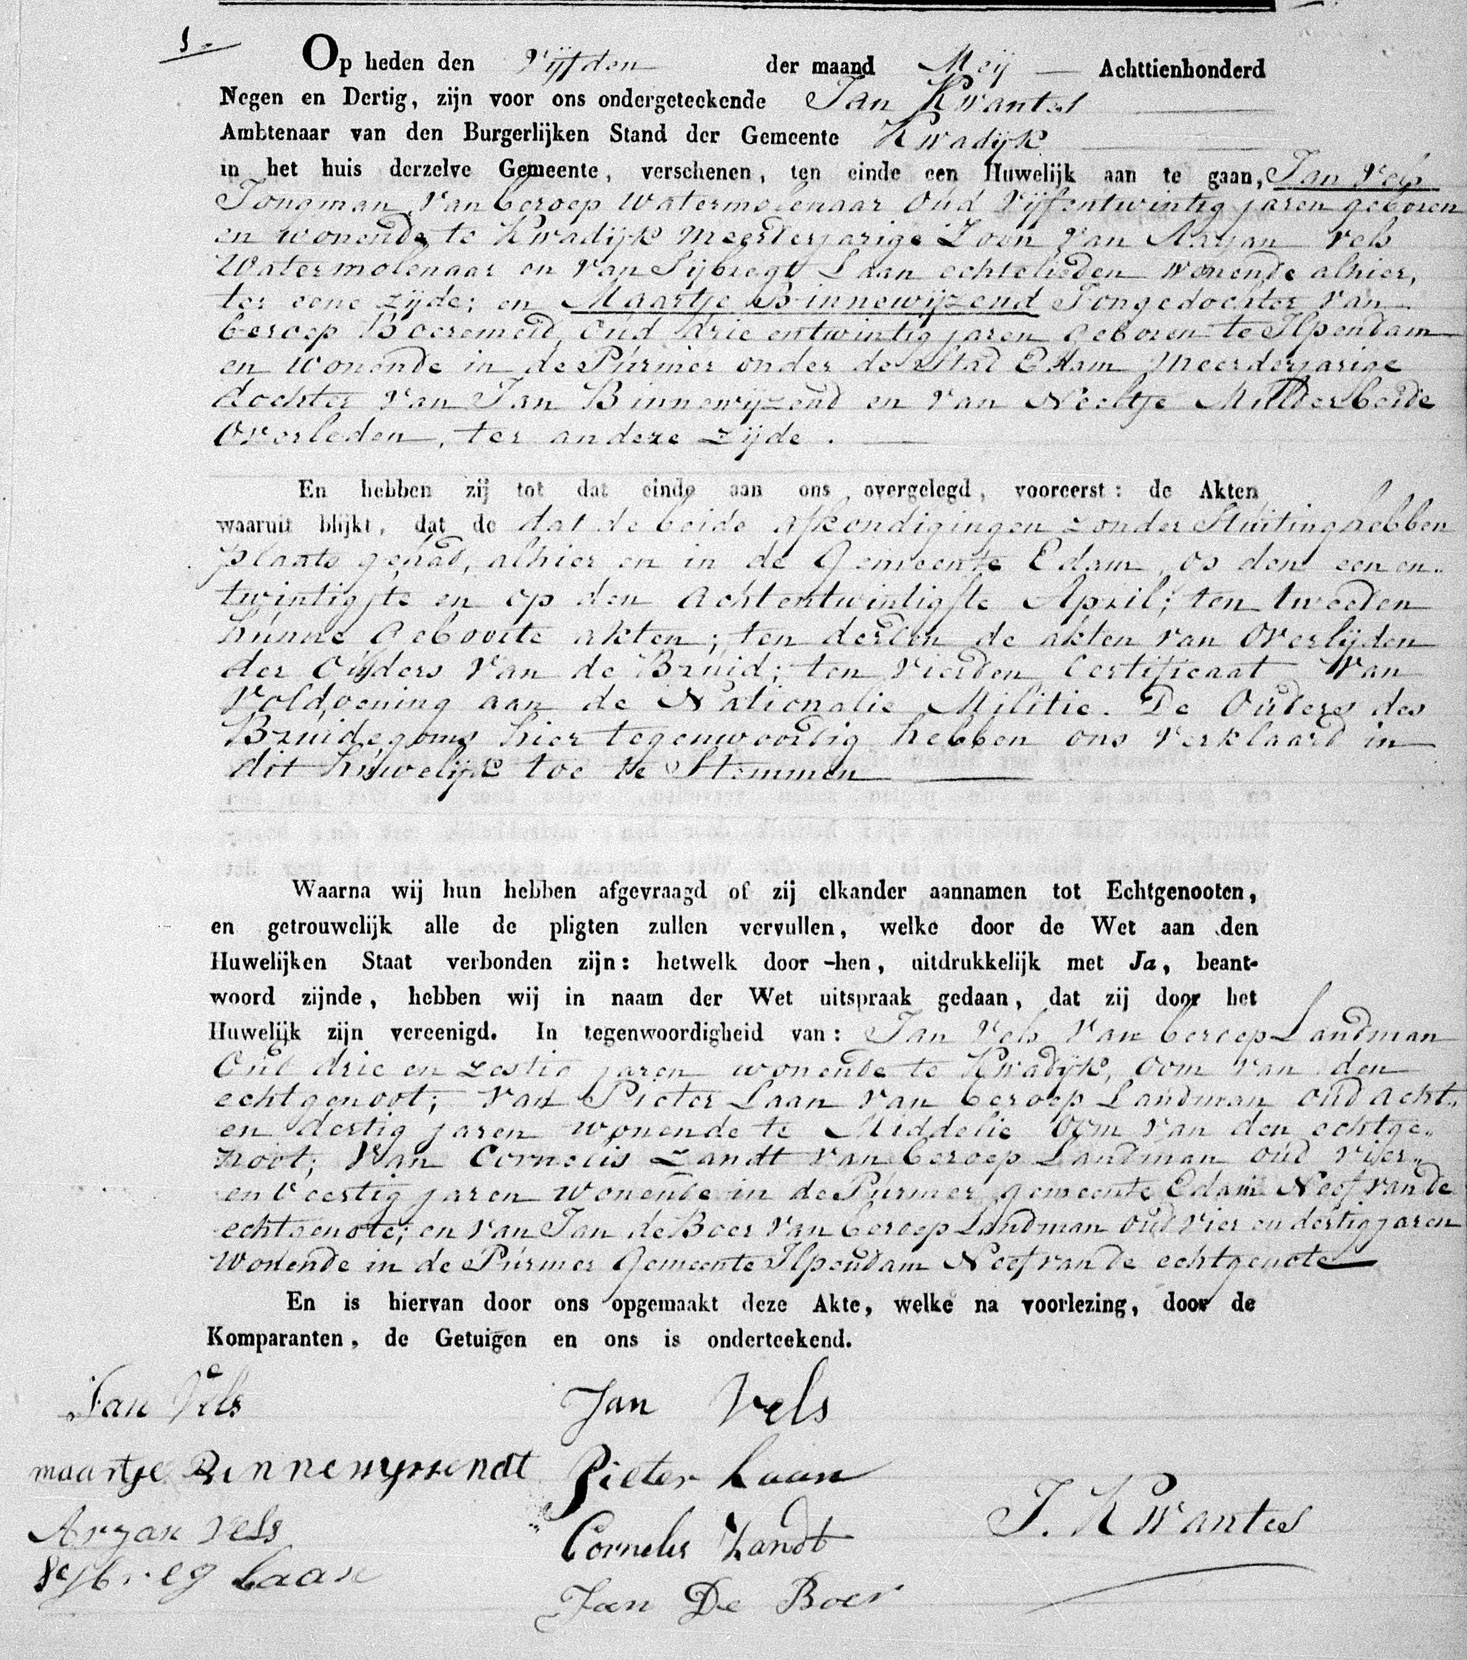 5.
Op heden den Vijfden der maand Meij Achttienhonderd
Negen en Dertig, zijn voor ons ondergeteekende Jan Kwantes
Ambtenaar van den Burgerlijken Stand der Gemeente Kwadijk
in het huis derzelve Gemeente, verschenen, ten einde een Huwelijk aan te gaan, Jan Vels
Jongman, van beroep Watermolenaar oud vijfentwintig jaren geboren
en wonende te Kwadijk meerderjarige Zoon van Aarjan Vels
Watermolenaar en van Sijbregt Laan echtelieden wonende alhier,
ter eene zijde; en Maartje Binnewijzend Jongedochter van
beroep Boeremeid, oud drie entwintig jaren geboren te Ilpendam
en wonende in de Purmer onder de stad Edam meerderjarige
dochter van Jan Binnewijzend en van Neeltje Mulder beide
overleden, ter andere zijde.
En hebben zij tot dat einde aan ons overgelegd, vooreerst: de Akten
waaruit blijkt, dat de dat de beide afkondigingen zonder Stuiting hebben
plaats gehad, alhier en in de Gemeente Edam, op den een en-
twintigste en op den Achtentwintigste April; ten tweeden
hunne Geboorte akten; ten derden de akten van Overlijden
der Ouders van de Bruid; ten vierden Certificaat van
voldoening aan de Nationalie Militie. De Ouders des
Bruidegoms hier tegenwoordig hebben ons verklaard in
dit huwelijk toe te Stemmen
Waarna wij hun hebben afgevraagd of zij elkander aannamen tot Echtgenooten,
en getrouwelijk alle de pligten zullen vervullen, welke door de Wet aan den
Huwelijken Staat verbonden zijn: hetwelk door -hen, uitdrukkelijk met Ja, beant-
woord zijnde, hebben wij in naam der Wet uitspraak gedaan, dat zij door het
Huwelijk zijn vereenigd. In tegenwoordigheid van: Jan Vels van beroep Landman
Oud drie en zestig jaren wonende te Kwadijk, oom van den
echtgenoot; van Pieter Laan van beroep Landman oud acht-
en dertig jaren wonende te Middelie Oom van den echtge-
noot; van Cornelis Zandt van beroep Landman oud vier-
en Veertig jaren wonende in de Purmer, gemeente Edam Neef van de
echtgenote; en van Jan de Boer van beroep Landman oud vier en dertig jaren
wonende in de Purmer Gemeente Ilpendam Neef van de echtgenote
En is hiervan door ons opgemaakt deze Akte, welke na voorlezing, door de
Komparanten, de Getuigen en ons is onderteekend.
Jan Vels Jan Vels
maartje Binnewyssendt Pieter Laan
Aryan Vels Cornelis Zandt J. Kwantes
Seybreg Laan Jan De Boer